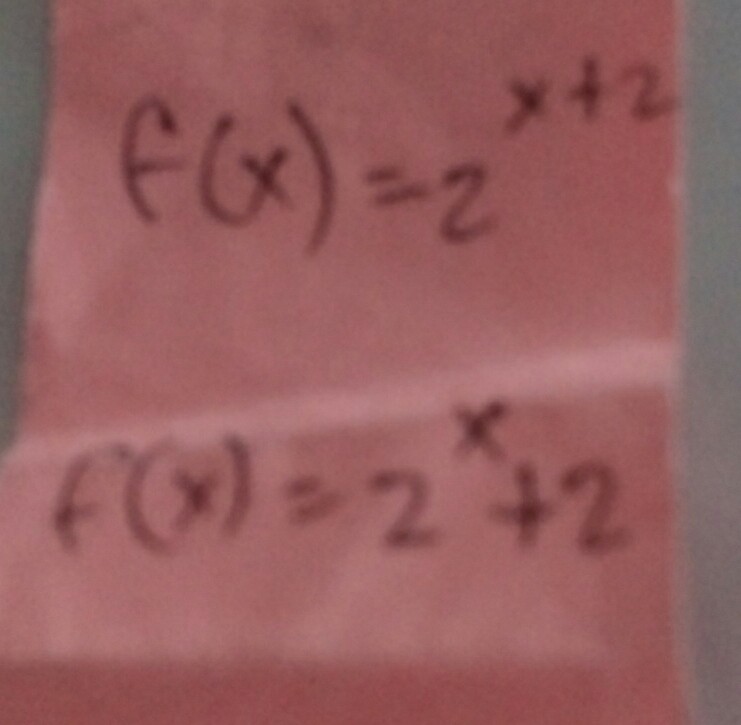 f(x)=2^{x+2}
f(x)=2^x+2